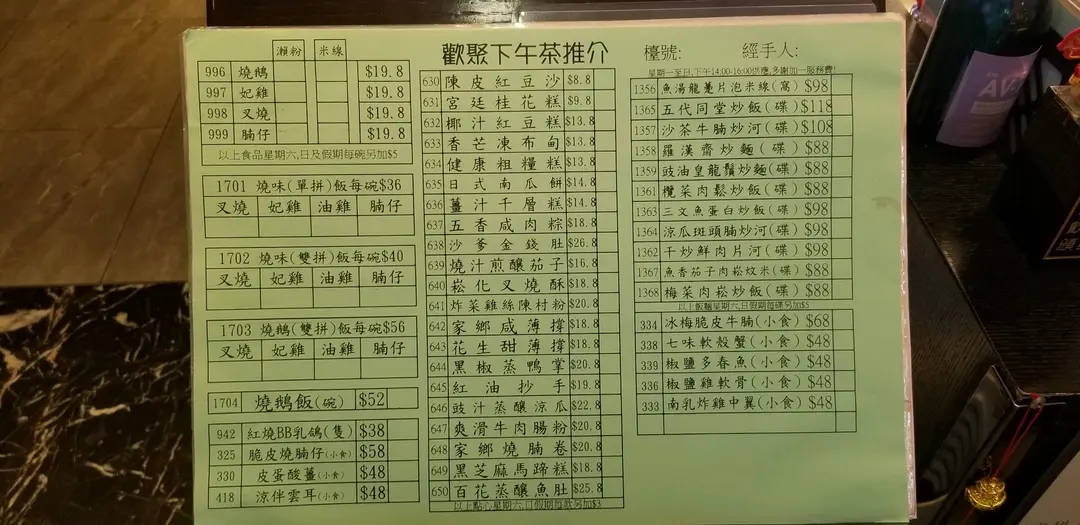 歡聚下午茶推介
檯號:
經手人:
星期一至日,下午14:00-16:00供應,多謝加一服務費!
瀨粉 米線
996 燒鵝 $19.8
997 妃雞 $19.8
998 叉燒 $19.8
999 腩仔 $19.8
以上食品星期六,日及假期每碗另加$5
1701 燒味(單拼)飯每碗$36
叉燒 妃雞 油雞 腩仔
1702 燒味(雙拼)飯每碗$40
叉燒 妃雞 油雞 腩仔
1703 燒鵝(雙拼)飯每碗$56
叉燒 妃雞 油雞 腩仔
1704 燒鵝飯(碗) $52
942 紅燒BB乳鴿(隻) $38
325 脆皮燒腩仔(小食) $58
330 皮蛋酸薑(小食) $48
418 涼伴雲耳(小食) $48
630 陳皮紅豆沙 $8.8
631 宮廷桂花糕 $9.8
632 椰汁紅豆糕 $13.8
633 香芒凍布甸 $13.8
634 健康粗糧糕 $13.8
635 日式南瓜餅 $14.8
636 薑汁千層糕 $14.8
637 五香咸肉粽 $18.8
638 沙爹金錢肚 $26.8
639 燒汁煎釀茄子 $16.8
640 崧化叉燒酥 $18.8
641 炸菜雞絲陳村粉 $20.8
642 家鄉咸薄撐 $18.8
643 花生甜薄撐 $18.8
644 黑椒蒸鴨掌 $20.8
645 紅油抄手 $19.8
646 豉汁蒸釀涼瓜 $22.8
647 爽滑牛肉腸粉 $20.8
648 家鄉燒腩卷 $20.8
649 黑芝麻馬蹄糕 $18.8
650 百花蒸釀魚肚 $25.8
以上點心星期六,日假期每款另加$3
1356 魚湯龍躉片泡米線(窩) $98
1365 五代同堂炒飯(碟) $118
1357 沙茶牛腩炒河(碟) $108
1358 羅漢齋炒麵(碟) $88
1359 豉油皇龍鬚炒麵(碟) $88
1361 欖菜肉鬆炒飯(碟) $88
1363 三文魚蛋白炒飯(碟) $98
1364 涼瓜斑頭腩炒河(碟) $98
1362 干炒鮮肉片河(碟) $98
1367 魚香茄子肉崧炆米(碟) $88
1368 梅菜肉崧炒飯(碟) $88
以上飯麵星期六,日假期每碟另加$5
334 冰梅脆皮牛腩(小食) $68
338 七味軟殼蟹(小食) $48
339 椒鹽多春魚(小食) $48
336 椒鹽雞軟骨(小食) $48
333 南乳炸雞中翼(小食) $48